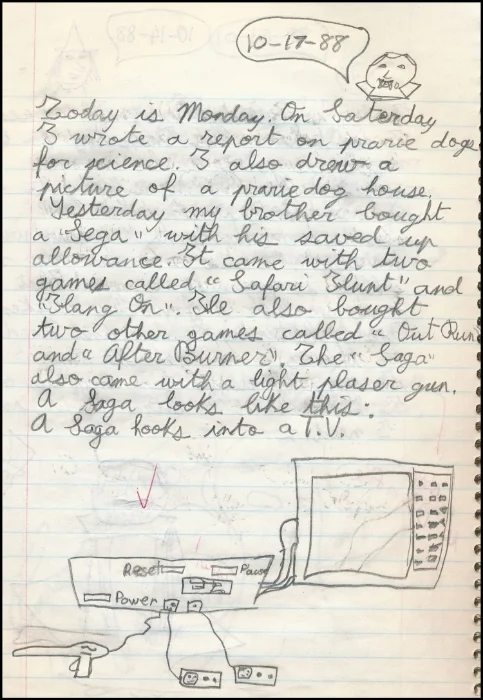 10-17-88
10-14-88
Today is Monday. On Saterday
I wrote a report on prarie dogs
for science. I also drew a
picture of a prarie dog house.
Yesterday my brother bought
a "Sega" with his saved up
allowance. It came with two
games called "Safari Hunt" and
"Hang On". He also bought
two other games called "Out Run"
and "After Burner". The "Saga"
also came with a light phaser gun.
A Saga looks like this:
A Saga hooks into a T.V.
Reset
Pause
Power